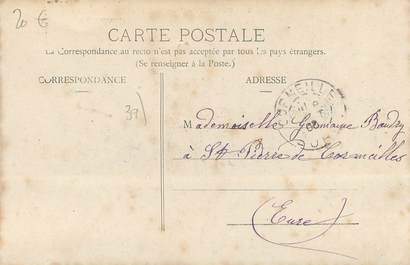 20 €
CARTE POSTALE
La Correspondance au recto n'est pas acceptée par tous les pays étrangers.
(Se renseigner à la Poste.)
CORRESPONDANCE
ADRESSE
Mademoiselle Germaine Baudry
à St Pierre de Cormeilles
(Eure)